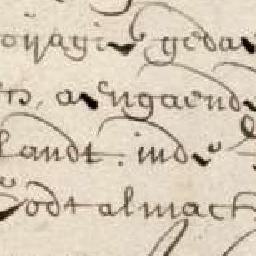 voyagie gedae
ts, aengaende
landt. inde
Godt almach